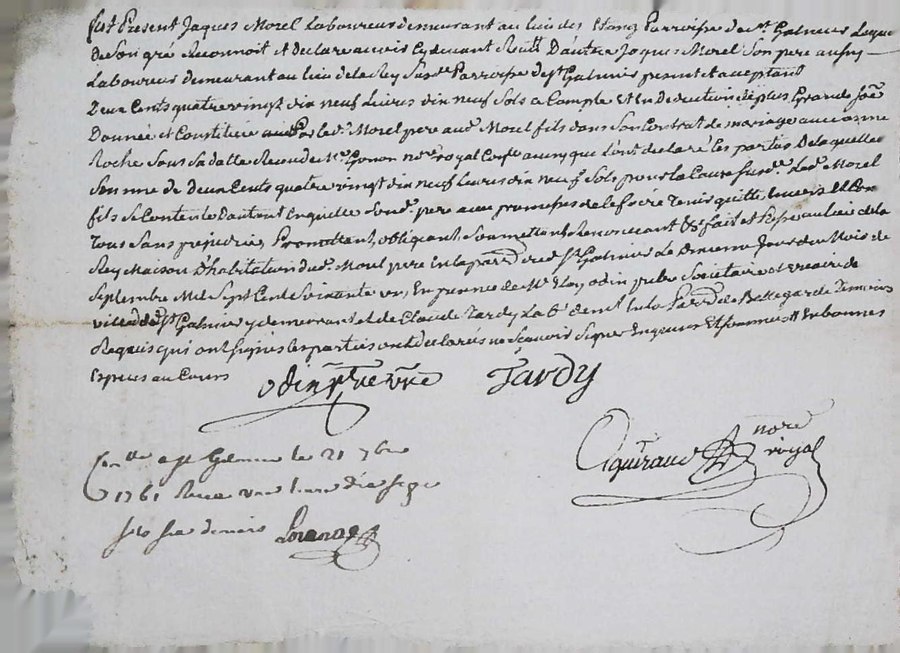 fut Present Jaques Morel Laboureur demeurant au lieu des Etangs Parroisse de st. Galmier Lequel
de Son gré Reconnoit et declare avoir Cydevant Reçu D'autre Jaques Morel Son pere aussy
Laboureur demeurant au lieu de la Rey Susd. Parroisse de st Galmier present et acceptant
Deux Cents quatre vingt dix neuf Livres dix neuf Sols a Compte et En Deduction de plus Grande some
Donnée et Constituée par led. Morel pere aud. Morel fils dans Son Contrat de mariage avec
Roche Sous Sa datte Receu de Me. Gonon nore. royal ainsy que l'ont declaré les parties De laquelle
Somme de deux Cents quatre vingt dix neuf livres dix neuf Sols pour la Cause Susd. led. Morel
fils Se Contente D'autant En quitte Sond. pere avec promesse de le faire Tenir quitte Envers Et Con
Tous Sans prejudice Promettant, obligeant, Soumettant Renonceant &c fait et Passé au lieu de la
Rey Maison D'habitation dud. Morel pere En la parr. de st. Galmier Le Onzieme Jour du Mois de
Septembre Mil Sept Cent Soixante un, En presence de Odin
ville de st. Galmier y demeurant et de Claude Tardy Lab. Parr. de Bellegarde Temoins
Requis qui ont Signé les parties ont declaré ne Sçavoir Signer Enquises Et Sommées # En bonnes
Especes au Cours
Odin Tardy
nore
royal
Conllé a st Galmier le 21 7bre
1761 Receu une livre dix sept
sols six deniers